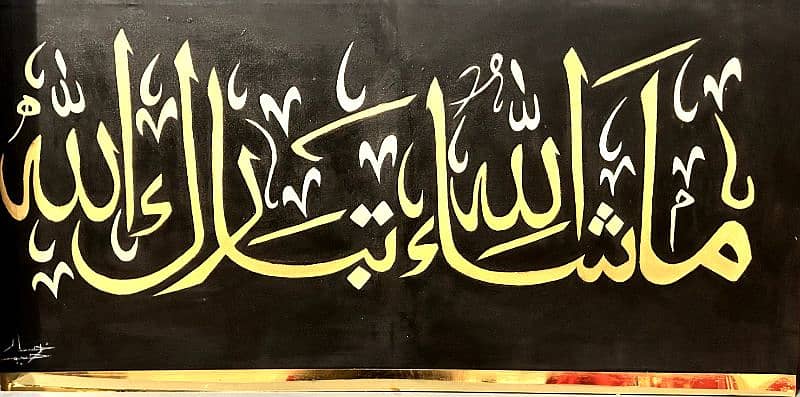 ما شاء الله تبارك الله